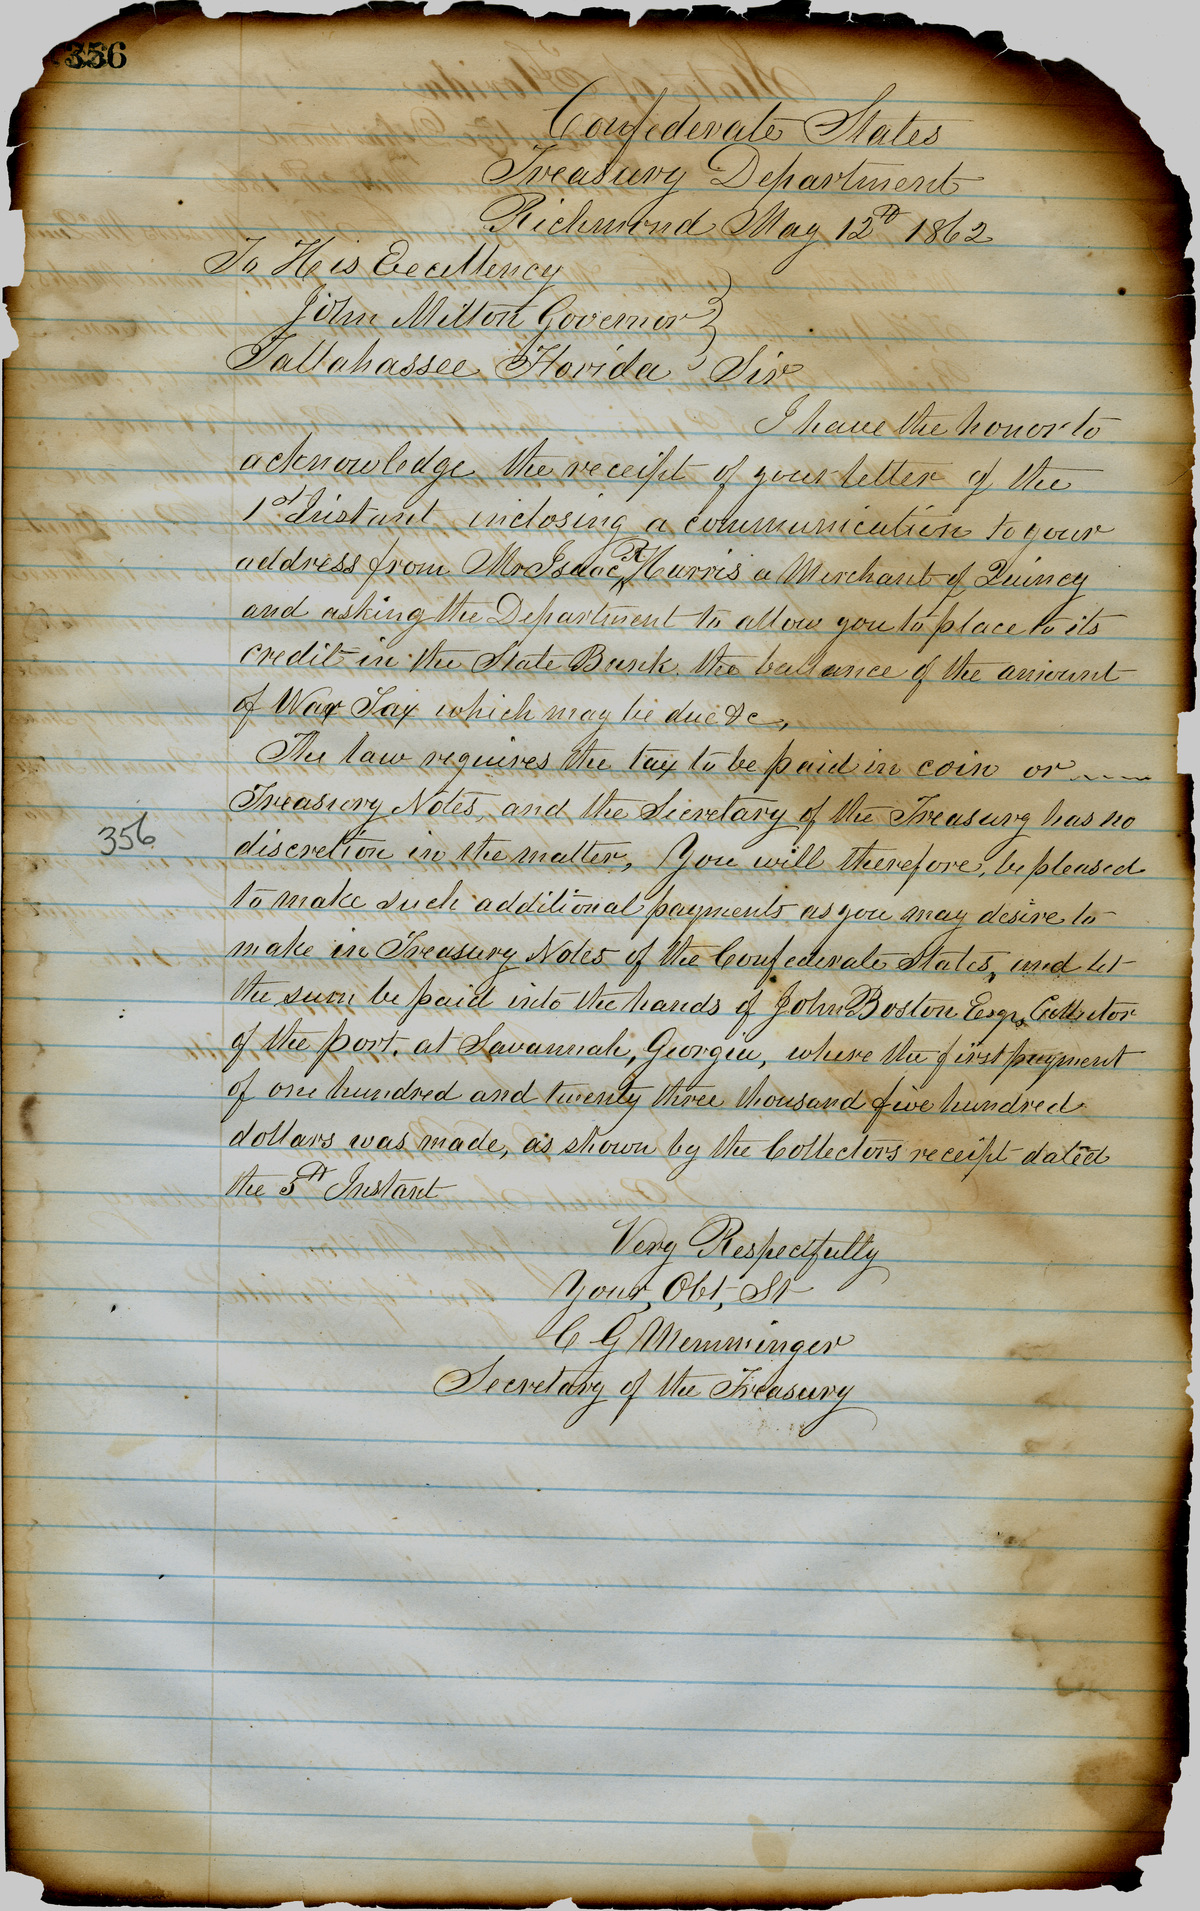 356
Confederate States
Treasury Department
Richmond May 12th 1862
To His Excellency
John Milton Governor
Tallahassee Florida Sir
I have the honor to
acknowledge the receipt of your letter of the
1st Instant inclosing a communication to your
address from Mr Isaac R Harris a Merchant of Quincy
and asking the Department to allow you to place to its
credit in the State Bank the ballance of the amount
of War Tax which may be due &c,
The law requires the tax to be paid in coin or
Treasury Notes, and the Secretary of the Treasury has no
356
discretion in the matter, You will therefore, be pleased
to make such additional payments as you may desire to
make in Treasury Notes of the Confederate States, and let
the sum be paid into the hands of John Boston Esqr, Collector
of the port, at Savannah, Georgia, where the first payment
of one hundred and twenty three thousand five hundred
dollars was made, as shown by the Collectors receipt dated
the 5th Instant
Very Respectfully
Your, Obt, St
C G Memminger
Secretary of the Treasury